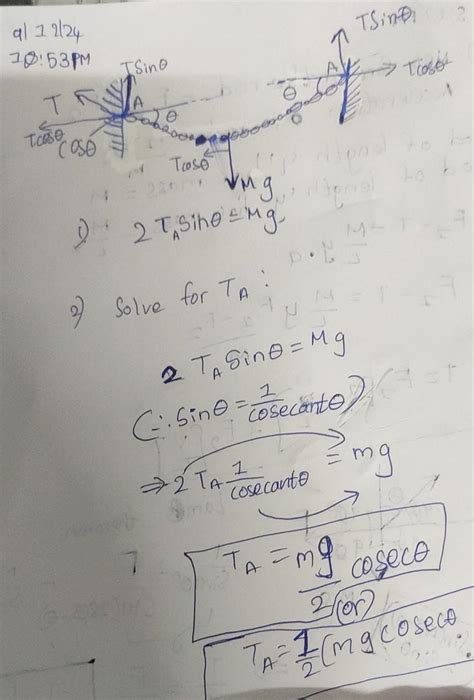 9/12/24
10:53PM
TSinθ
TSinθ
T
A
θ
θ
A
Tcosθ
Tcosθ
cosθ
Tcosθ
Mg
1) 2 T_A Sinθ = Mg
2) Solve for T_A :
2 T_A Sinθ = Mg
(∵ Sinθ = 1/cosecantθ)
⇒ 2 T_A 1/cosecantθ = mg
T_A = mg/2 cosecθ
(or)
T_A = 1/2 (mg cosecθ